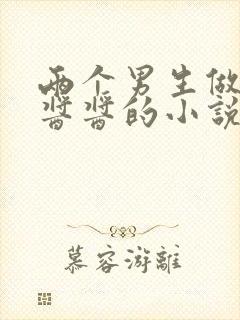 两个男生做
酱酱的小说
慕容游离